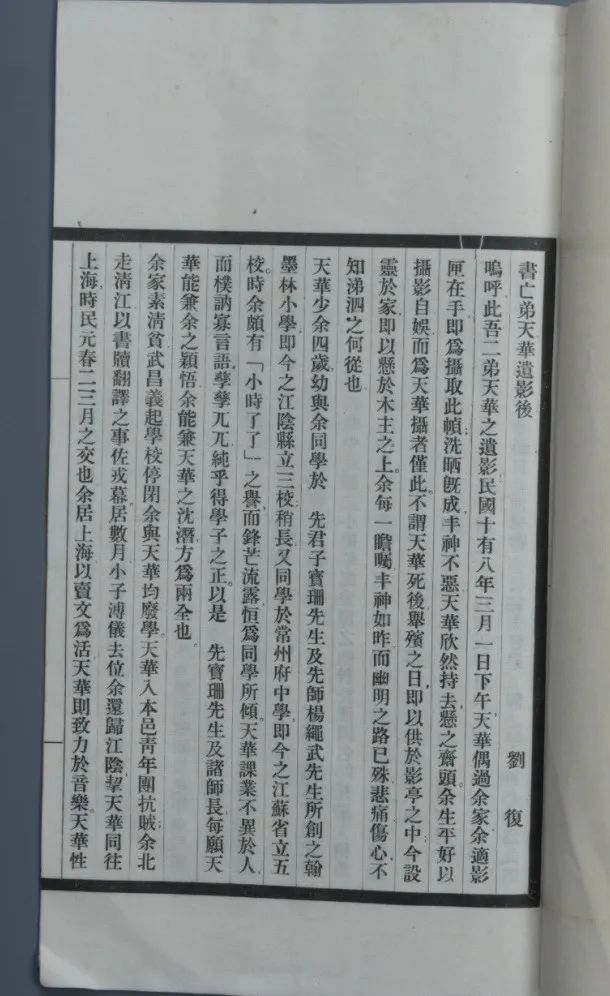 書亡弟天華遺影後
劉復
嗚呼此吾二弟天華之遺影民國十有八年三月一日下午天華偶過余家余適影
匣在手即爲攝取此幀洗晒旣成丰神不惡天華欣然持去懸之齋頭余生平好以
攝影自娛而爲天華攝者僅此不謂天華死後舉殯之日即以供於影亭之中今設
靈於家即以懸於木主之上余每一瞻矚丰神如昨而幽明之路已殊悲痛傷心不
知涕泗之何從也
天華少余四歲幼與余同學於 先君子寶珊先生及先師楊繩武先生所創之翰
墨林小學即今之江陰縣立三校稍長又同學於常州府中學即今之江蘇省立五
校時余頗有「小時了了」之譽而鋒芒流露恒爲同學所傾天華課業不異於人
而樸訥寡言語孳孳兀兀純乎得學子之正以是 先寶珊先生及諸師長每願天
華能兼余之穎悟余能兼天華之沈潛方爲兩全也
余家素淸貧武昌義起學校停閉余與天華均廢學天華入本邑靑年團抗賊余北
走淸江以書牘翻譯之事佐戎幕居數月小子溥儀去位余還歸江陰挈天華同往
上海時民元春二三月之交也余居上海以賣文爲活天華則致力於音樂天華性